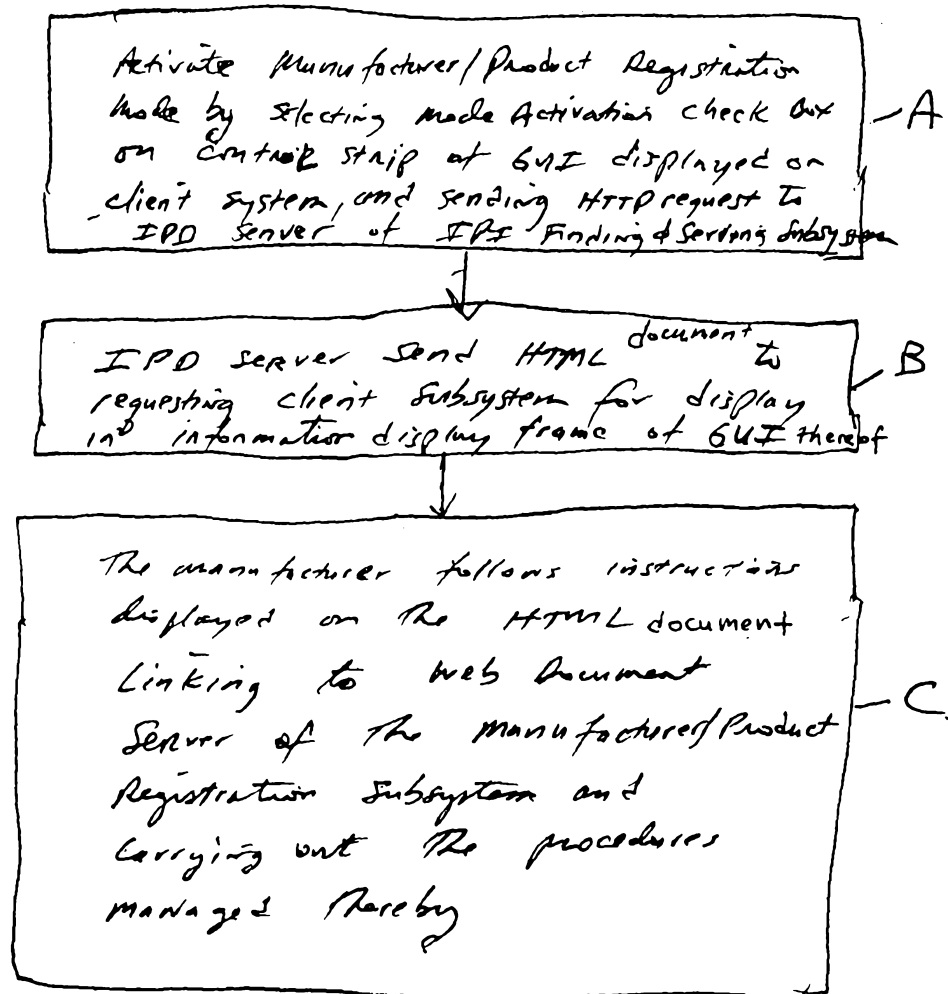 Activate Manufacturer/Product Registration
Mode by selecting mode Activation check box
on control strip of GUI displayed on
client system, and sending HTTP request to
IPD Server of IPI Finding & Serving Subsystem
A
IPD server send HTML document to
requesting client subsystem for display
in information display frame of GUI thereof
B
The manufacturer follows instructions
displayed on the HTML document
Linking to Web Document
Server of the Manufacturer/Product
Registration Subsystem and
Carrying out the procedures
managed thereby
C